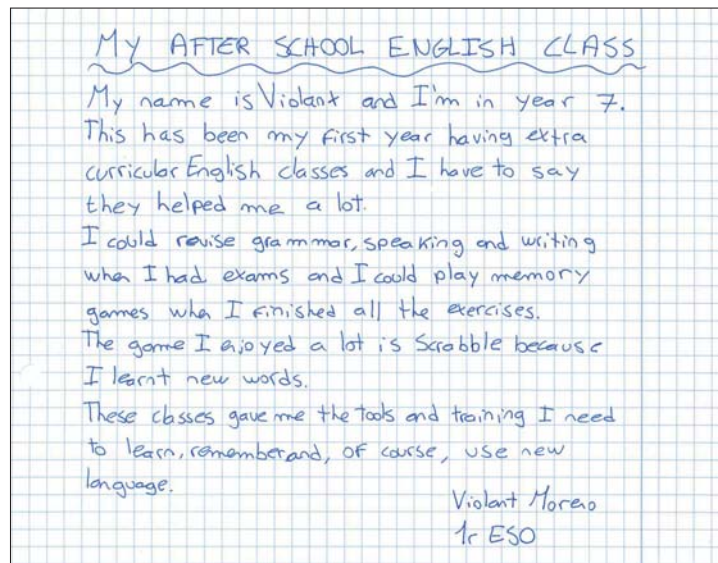 MY AFTER SCHOOL ENGLISH CLASS
My name is Violant and I'm in year 7.
This has been my first year having extra
curricular English classes and I have to say
they helped me a lot.
I could revise grammar, speaking and writing
when I had exams and I could play memory
games when I finished all the exercises.
The game I enjoyed a lot is Scrabble because
I learnt new words.
These classes gave me the tools and training I need
to learn, remember and, of course, use new
language.
Violant Moreno
1r ESO